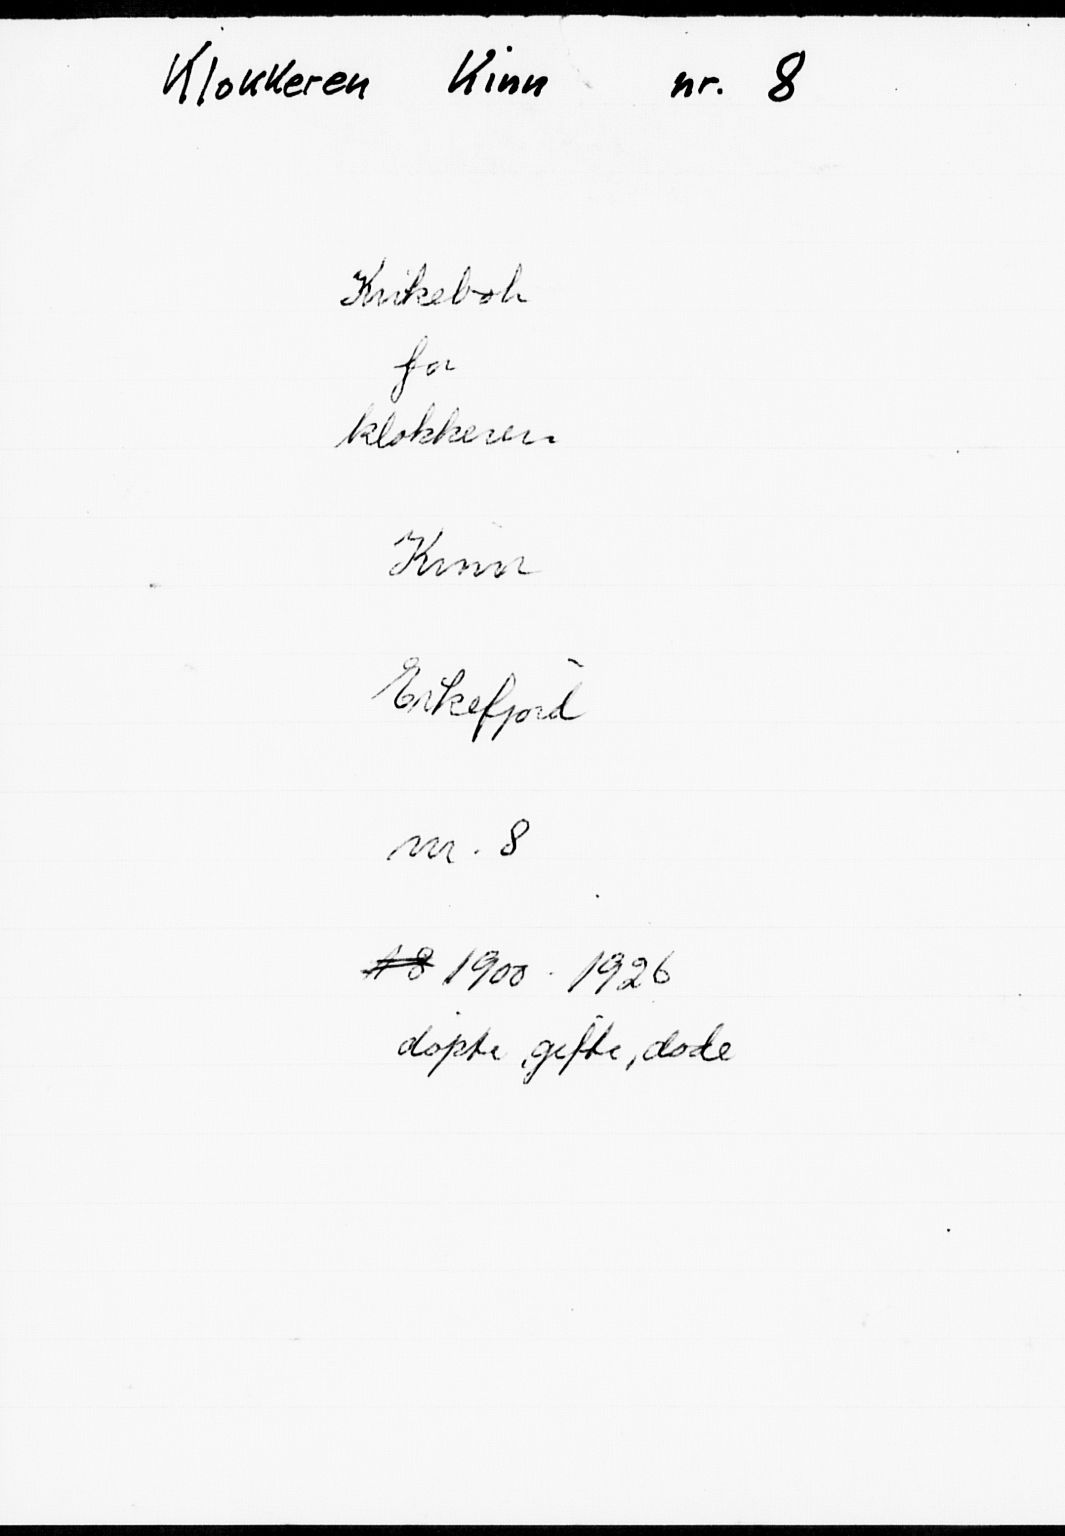 Klokkeren Kinn nr. 8
Kirkebok
for
klokkeren
Kinn
Eikefjord
nr. 8
18 1900 - 1926
døpte, gifte, døde